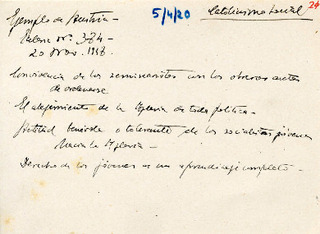 Ejemplo de Austria -
5/4/20
Catolicismo social
24
Eclesia nº. 384 -
20 Nov. 1948.
Convivencia de los seminaristas con los obreros antes
de ordenarse
El alejamiento de la Iglesia de toda política -
Actitud benévola o tolerante de los socialistas jóvenes
hacia la Iglesia -
Derecho de los jóvenes a un aprendizaje completo -